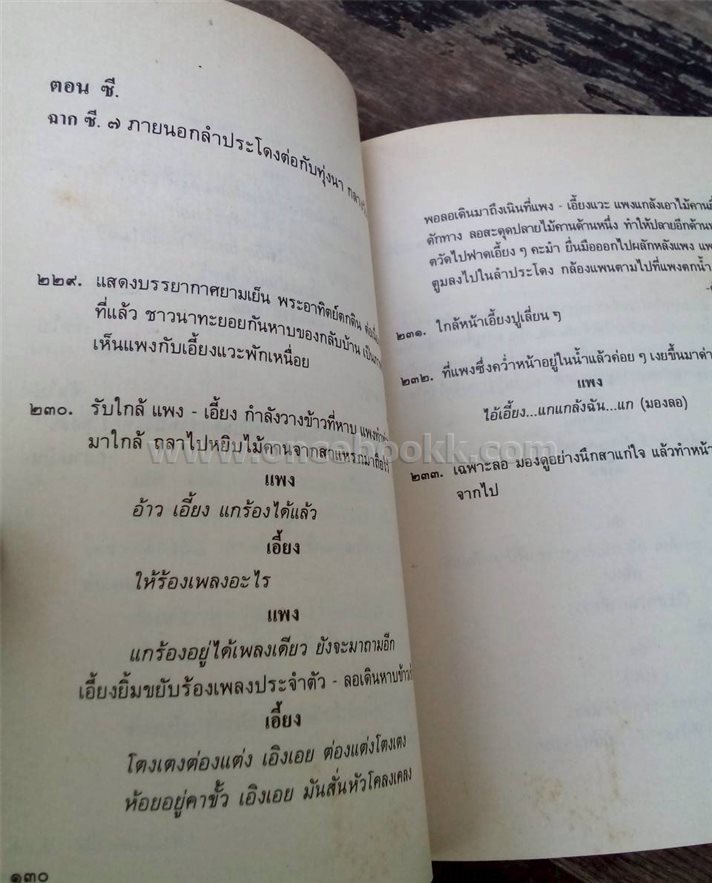 ตอน ซี.
ฉาก ซี. ๗ ภายนอกลำประโดงต่อกับทุ่งนา
๒๒๙. แสดงบรรยากาศยามเย็น พระอาทิตย์ตกดิน
ที่แล้ว ชาวนาทะยอยกันหาบของกลับบ้าน
เห็นแพงกับเอี้ยงแวะพักเหนื่อย
๒๓๐. รับใกล้ แพง - เอี้ยง กำลังวางข้าวที่หาบ
มาใกล้ ถลาไปหยิบไม้คานจากสาแหรก
แพง
อ้าว เอี้ยง แกร้องได้แล้ว
เอี้ยง
ให้ร้องเพลงอะไร
แพง
แกร้องอยู่ได้เพลงเดียว ยังจะมาถามอีก
เอี้ยงยิ้มขยับร้องเพลงประจำตัว - ลอเดินหาบข้าว
เอี้ยง
โตงเตงต่องแต่ง เอิงเอย ต่องแต่งโตงเตง
ห้อยอยู่คาขั้ว เอิงเอย มันสั่นหัวโคลงเคลง
๑๓๐
พอลอเดินมาถึงเนินที่แพง - เอี้ยงแวะ แพงแกล้งเอาไม้คาน
ดักทาง ลอสะดุดปลายไม้คานด้านหนึ่ง ทำให้ปลายอีกด้าน
ตวัดไปฟาดเอี้ยง ๆ คะมำ ยื่นมือออกไปผลักหลังแพง
ตูมลงไปในลำประโดง กล้องแพนตามไปที่แพงตกน้ำ
๒๓๑. ใกล้หน้าเอี้ยงปูเลี่ยน ๆ
๒๓๒. ที่แพงซึ่งคว่ำหน้าอยู่ในน้ำแล้วค่อย ๆ เงยขึ้นมา
แพง
ไอ้เอี้ยง...แกแกล้งฉัน...แก (มองลอ)
๒๓๓. เฉพาะลอ มองดูอย่างนึกสาแก่ใจ แล้วทำหน้า
จากไป